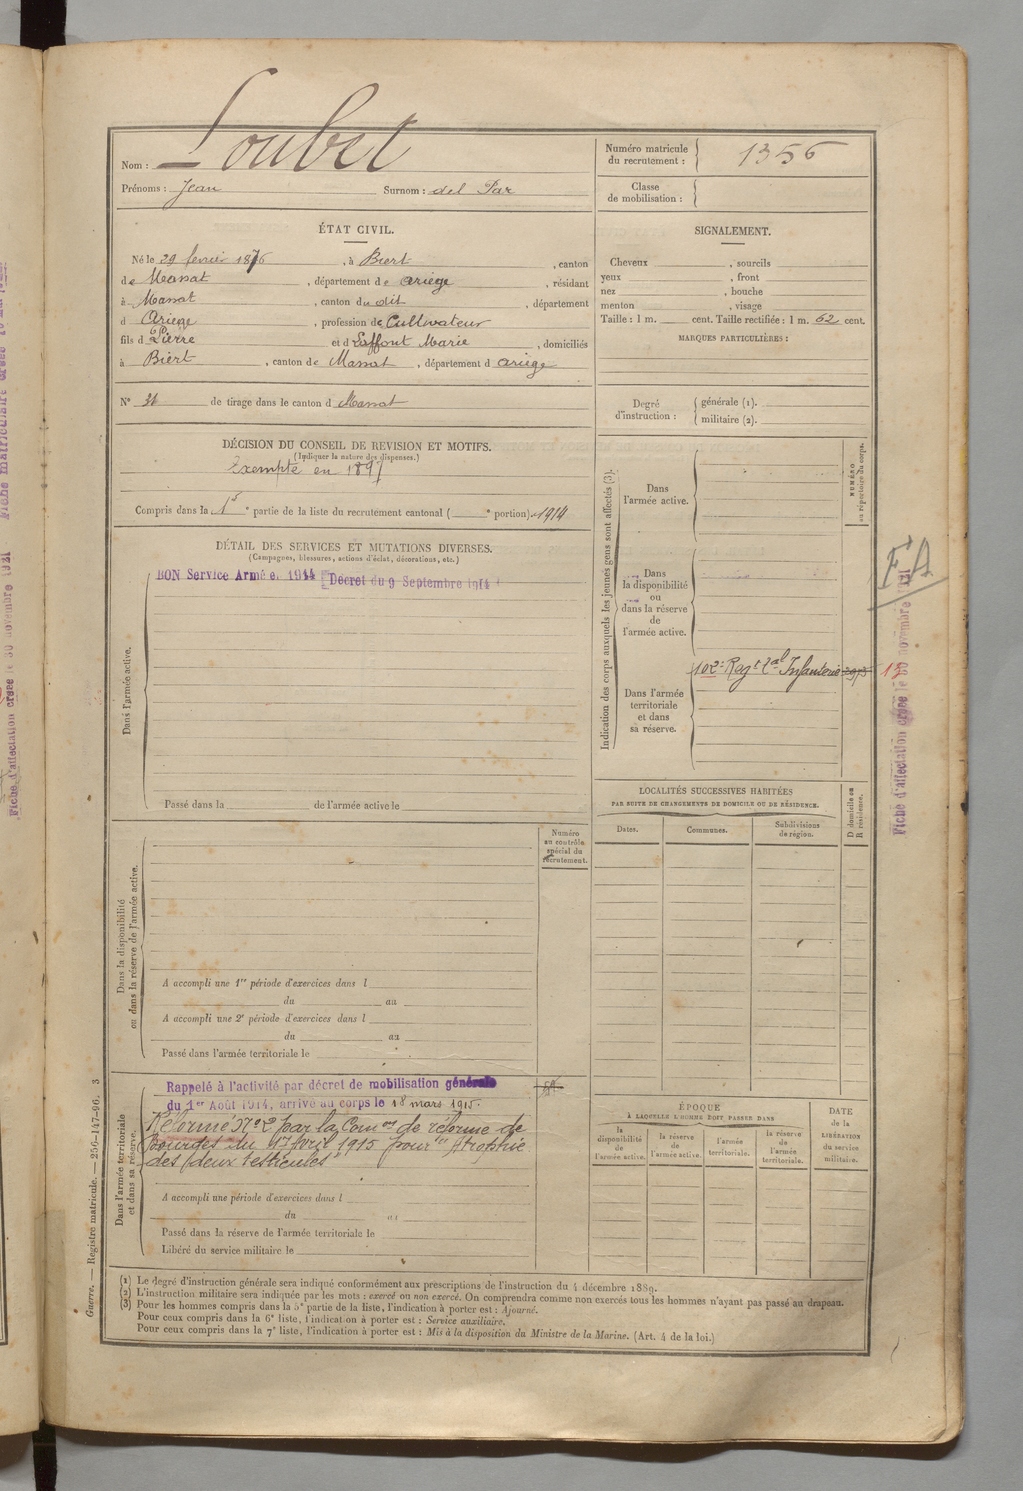 Nom : Loubet
Prénoms : Jean Surnom : del Par
ÉTAT CIVIL.
Né le 29 février 1876, à Biert, canton
de Massat, département de Ariège, résidant
à Massat, canton du dit, département
d Ariège, profession de Cultivateur
fils de Pierre et d Laffont Marie, domiciliés
à Biert, canton de Massat, département d Ariège
N° 31 de tirage dans le canton d Massat
DÉCISION DU CONSEIL DE REVISION ET MOTIFS.
(Indiquer la nature des dispenses.)
Exempté en 1897
Compris dans la 1e partie de la liste du recrutement cantonal ( e portion). 1914
DÉTAIL DES SERVICES ET MUTATIONS DIVERSES.
(Campagnes, blessures, actions d'éclat, décorations, etc.)
BON Service Armée. 1914 Décret du 9 Septembre 1914
Dans l'armée active.
Passé dans la de l'armée active le
Numéro
au contrôle
spécial du
recrutement.
Dans la disponibilité
ou dans la réserve de l'armée active.
A accompli une 1re période d'exercices dans l
du au
A accompli une 2e période d'exercices dans l
du au
Passé dans l'armée territoriale le
Dans l'armée territoriale
et dans sa réserve.
Rappelé à l'activité par décret de mobilisation générale
du 1er Août 1914, arrivé au corps le 18 mars 1915.
Réformé N° 2 par la Comon de réforme de
Bourges du 17 Avril 1915 pour "Atrophie
des deux testicules"
A accompli une période d'exercices dans l
du au
Passé dans la réserve de l'armée territoriale le
Libéré du service militaire le
Numéro matricule
du recrutement : 1356
Classe
de mobilisation :
SIGNALEMENT.
Cheveux , sourcils
yeux , front
nez , bouche
menton , visage
Taille : 1 m. cent. Taille rectifiée : 1 m. 62 cent.
MARQUES PARTICULIÈRES :
Degré
d'instruction :
générale (1).
militaire (2).
Indication des corps auxquels les jeunes gens sont affectés (3).
NUMÉRO
au répertoire du corps.
Dans
l'armée active.
Dans
la disponibilité
ou
dans la réserve
de
l'armée active.
102e Regt tal Infanterie
Dans l'armée
territoriale
et dans
sa réserve.
LOCALITÉS SUCCESSIVES HABITÉES
PAR SUITE DE CHANGEMENTS DE DOMICILE OU DE RÉSIDENCE.
Dates. Communes. Subdivisions
de région.
D domicile ou
R résidence.
ÉPOQUE
À LAQUELLE L'HOMME DOIT PASSER DANS
la
disponibilité
de
l'armée active.
la réserve
de
l'armée active.
l'armée
territoriale.
la réserve
de
l'armée
territoriale.
DATE
de la
LIBÉRATION
du service
militaire.
FA
Fiche d'affectation créée le 30 novembre 1921
(1) Le degré d'instruction générale sera indiqué conformément aux prescriptions de l'instruction du 4 décembre 1889.
(2) L'instruction militaire sera indiquée par les mots : exercé ou non exercé. On comprendra comme non exercés tous les hommes n'ayant pas passé au drapeau.
(3) Pour les hommes compris dans la 5e partie de la liste, l'indication à porter est : Ajourné.
Pour ceux compris dans la 6e liste, l'indication à porter est : Service auxiliaire.
Pour ceux compris dans la 7e liste, l'indication à porter est : Mis à la disposition du Ministre de la Marine. (Art. 4 de la loi.)
Guerre. — Registre matricule. — 256-147-96. 3
Fiche d'affectation créée le 30 novembre 1921